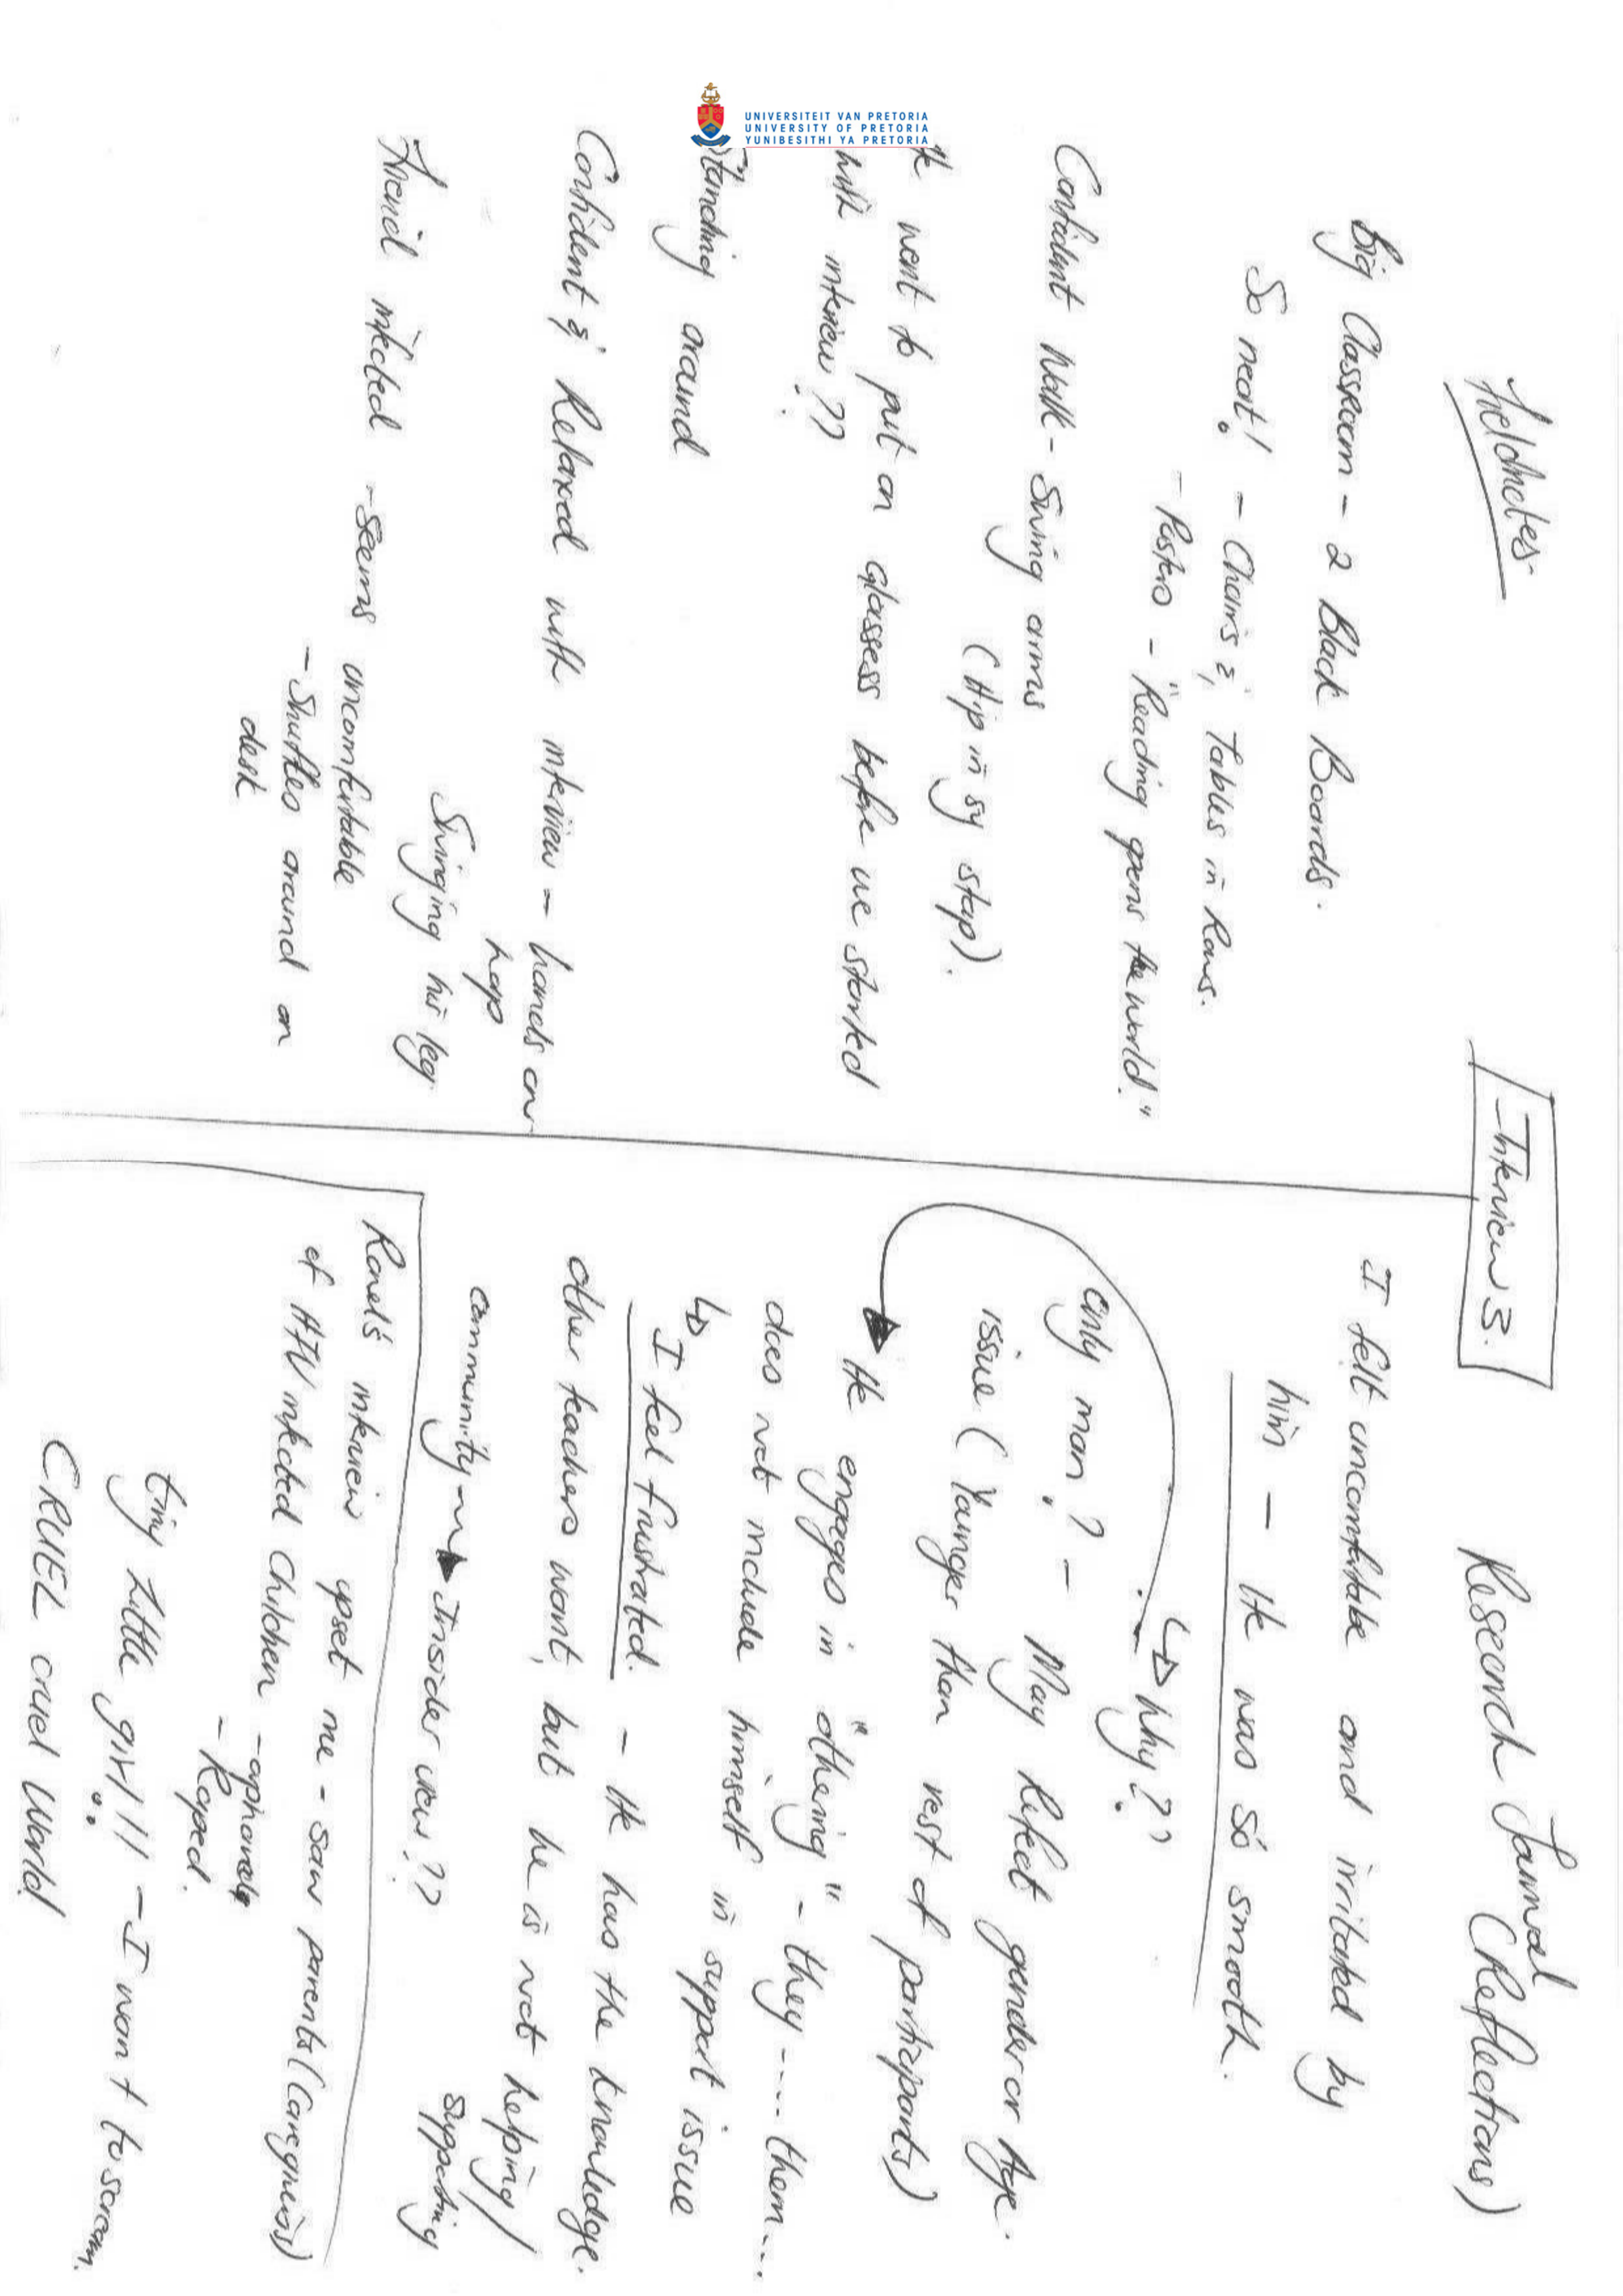 UNIVERSITEIT VAN PRETORIA
UNIVERSITY OF PRETORIA
YUNIBESITHI YA PRETORIA
Interview 3.
Fieldnotes
Big Classroom - 2 Black Boards.
So neat! - Chairs & Tables in Rows.
- Posters - "Reading opens the world."
Confident Walk - Swing arms
(Hip in sy stap).
He went to put on glassess before we started
with interview??
Standing around
Confident & Relaxed with interview - hands on
lap
Swinging his leg.
Friend infected - seems uncomfortable
- Shuffles around on
desk
Research Journal
(Reflections)
I felt uncomfortable and irritated by
him - He was so smooth.
↳ Why??
Only man? - May Reflect gender or Age.
issue (Younger than rest of participants)
He engages in "othering" - they ---- them ---
does not include himself in support issue
↳ I feel frustrated. - He has the knowledge.
other teachers want, but he is not helping/
supporting
community → Insider view??
Ronel's interview upset me - saw parents (Caregivers)
of HIV infected Children - ophaned
- Raped.
tiny Little girl!!! - I want to scream.
CRUEL cruel World